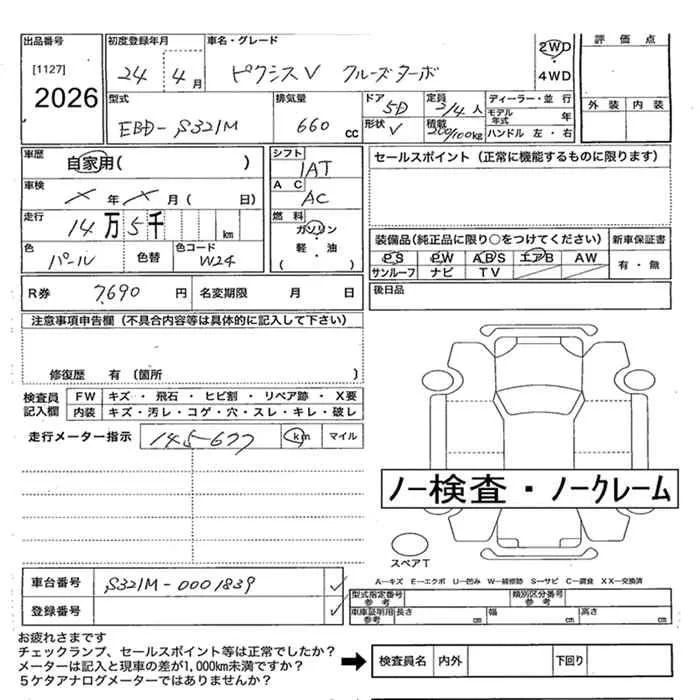 出品番号 初度登録年月 車名・グレード 2WD 評価点
[1127] 24 4月 ピクシスV クルーズターボ 4WD
2026 型式 排気量 ドア 5D 定員 2/4人 ディーラー・並行 外装 内装
EBD-S321M 660cc 形状 V 積載 200/100kg モデル年式 年
ハンドル 左・右
車歴 自家用( ) シフト IAT セールスポイント(正常に機能するものに限ります)
車検 × 年 × 月( 日) AC AC
走行 14万5千 km 燃料 ガソリン 装備品(純正品に限り○をつけてください) 新車保証書
色 パール 色替 色コード W24 軽・油 ( ) PS PW ABS エアB AW 有・無
サンルーフ ナビ TV
R券 7,690円 名変期限 月 日 後日品
注意事項申告欄(不具合内容等は具体的に記入して下さい)
修復歴 有〔箇所
検査員記入欄 FW キズ・飛石・ヒビ割・リペア跡・X要
内装 キズ・汚レ・コゲ・穴・スレ・キレ・破レ
走行メーター指示 145677 km マイル
ノー検査・ノークレーム
スペアT
A―キズ E―エクボ U―凹み W―補修跡 S―サビ C―腐食 XX―交換済
車台番号 S321M-0001839 型式指定番号 参考 類別区分番号 参考
登録番号 車庫証明用 参考 長さ cm 幅 cm 高さ cm
お疲れさまです
チェックランプ、セールスポイント等は正常でしたか?
メーターは記入と現車の差が1,000km未満ですか? ➡ 検査員名 内外 下回り
5ケタアナログメーターではありませんか?